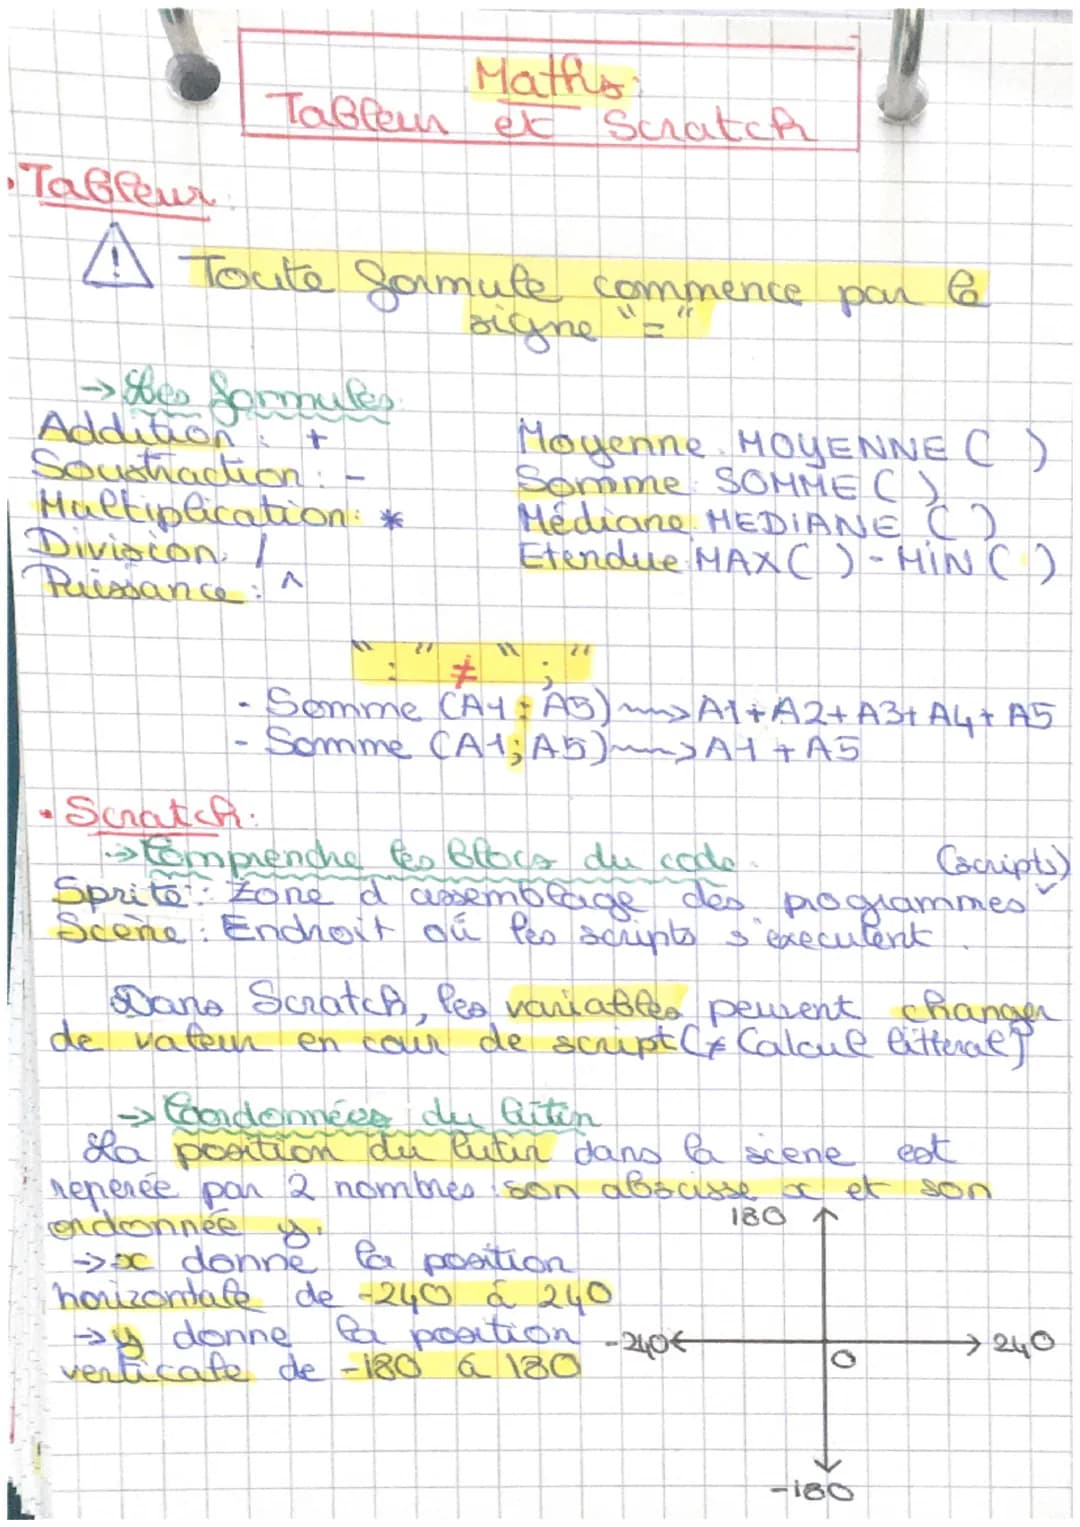 Maths:
Tableur et Scratch
• Tableur:
! Toute formule commence par le
signe "="
→ Les formules
Addition : +
Soustraction : -
Multiplication : *
Division : /
Puissance : ^
Moyenne : MOYENNE ( )
Somme : SOMME ( )
Médiane : MEDIANE ( )
Etendue : MAX ( ) - MIN ( )
" : " ≠ " ; "
- Somme (A1 : A5) → A1 + A2 + A3 + A4 + A5
- Somme (A1 ; A5) → A1 + A5
• Scratch :
→ Comprendre les blocs du code.
(scripts)
Sprite : Zone d'assemblage des programmes
Scène : Endroit où les scripts s'executent.
Dans Scratch, les variables peuvent changer
de valeur en cour de script (≠ Calcul litteral)
→ Coordonnées du lutin
La position du lutin dans la scene est
reperée par 2 nombres : son abscisse x et son
ordonnée y.
→ x donne la position
horizontale de -240 à 240
→ y donne la position
verticale de -180 à 180
180
-240
240
0
-180